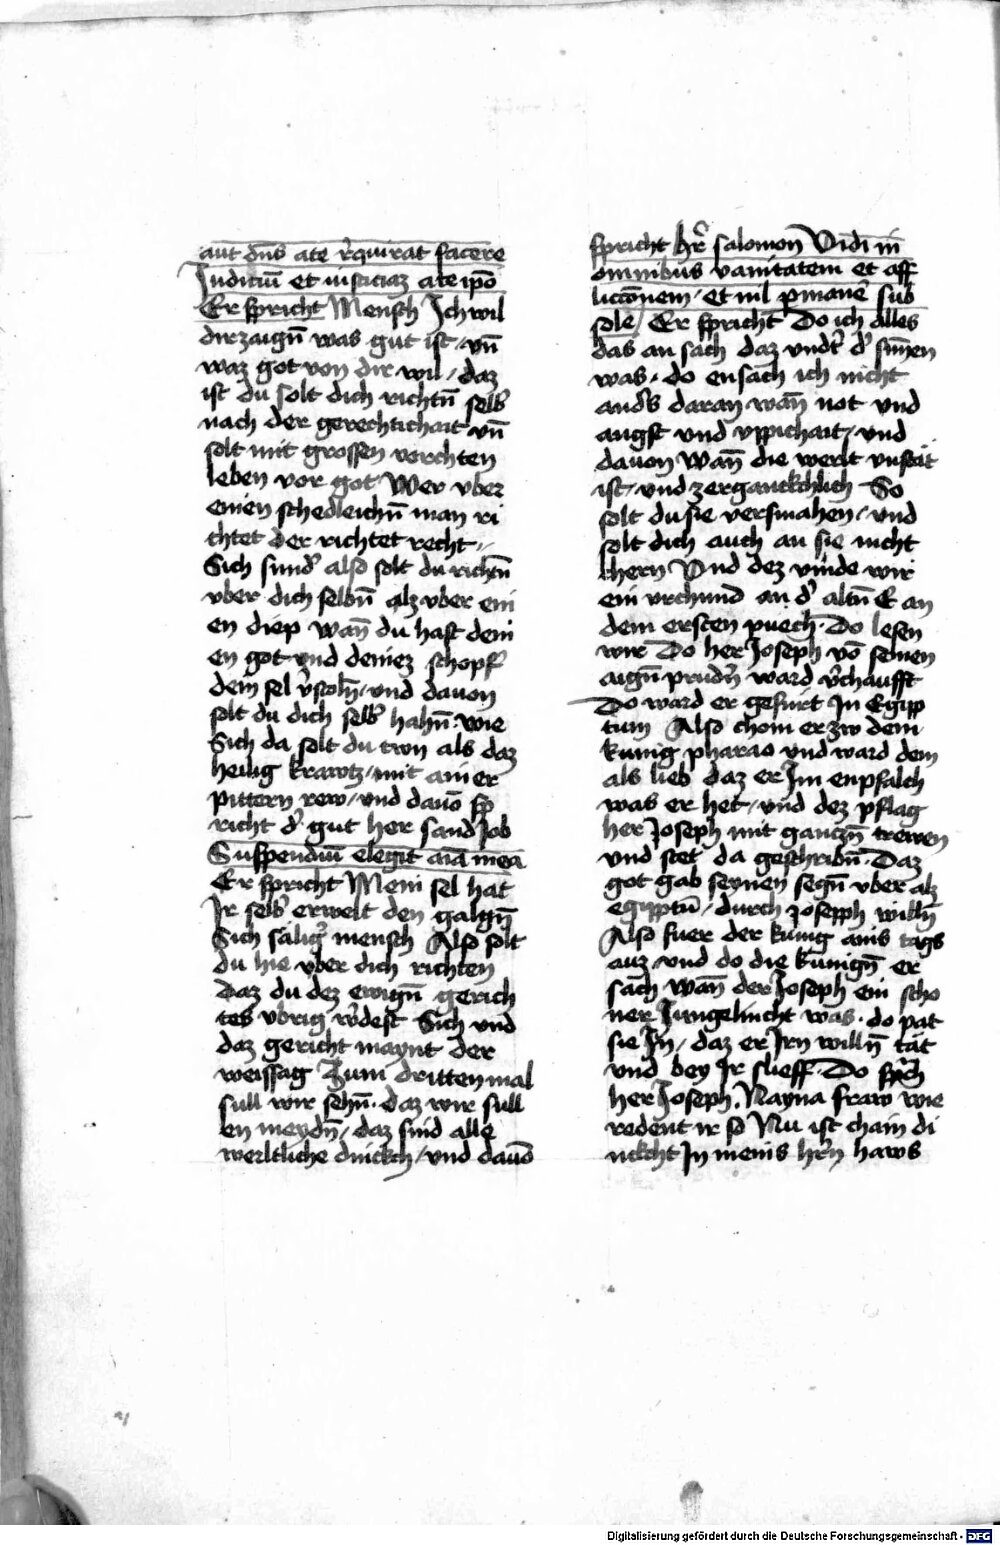 aut dn̄s ate r̄quirat facere
Judiciū et iusticiaz ate ip̄o
Er spricht Mensch Ich wil
dir zaign̄ was gut ist / vn̄
waz got von dir wil / daz
ist du solt dich richtn̄ selbs
nach der gerechtichait vn̄
solt mit grossen vorchten
leben vor got / Wer vber
einen schedleichn̄ man ri
chtet der richtet recht /
Sich sund᷑ also solt du richtn̄
vber dich selbn̄ alz vber ein
en diep wan̄ du hast dein
en got vnd deinez schopf
dein sel v᷑stoln̄ / vnd dauon
solt du dich selb᷑ hahn̄ wie
Sich da solt du twn als daz
heilig krawtz / mit ainer
pittern rew / vnd dauō sp
richt d᷑ gut her sand Job
Suspendiū elegit aīa mea
Er spricht Mein sel hat
Ir selb᷑ erwelt den galgn̄
Sich sälig᷑ mensch Also solt
du hie vber dich richten
daz du dez ewign̄ gerich
tes vbrig w᷑dest Sich vnd
daz gericht maynt der
weissag Zum dritten mal
sull wir sehn̄ · daz wir sull
en meydn̄ / daz sind alle
werltliche dinckch / vnd dauō
spricht h᷑r salomon Vidi in
omnibus vanitatem et aff
liccōnem / et nil p̄manē sub
sole / Er spricht Do ich alles
das an sach daz vndt᷑ d᷑ sun̄en
was · do ensach ich nicht
and᷑s daran wan̄ not vnd
angst vnd vppichait / vnd
dauon wan̄ die werlt vnstät
ist / vnd zerganckchlich So
solt du sie versmahen / vnd
solt dich auch an sie nicht
chern Vnd dez vinde wir
ein vrchund an d᷑ altn̄ E an
dem ersten puech · Do lesen
wir Do her Joseph vō seinen
aign̄ prudn̄ ward v᷑chaufft
Do ward er gefurt In Egipp
tum Also chom er zw dem
kunig pharao vnd ward dem
als lieb daz er Im enpfalch
was er het / vnd dez pflag
her Joseph mit ganczn̄ trewen
vnd stet da geschribn̄ · Daz
got gab seynen segn̄ vber alz
egypptū / durch Josepph willn̄
Also fuer der kunig ains tags
auz vnd do die kunign̄ er
sach wan̄ der Joseph ein scho
ner Jungelincht was · do pat
sie In / daz er Irn willn̄ tät
vnd bey Ir slieff · Do sprach
her Joseph · Nayna fraw wie
redent ir so Nu ist chain di
nckcht In meins h᷑rn haws
Digitalisierung gefördert durch die Deutsche Forschungsgemeinschaft - DFG